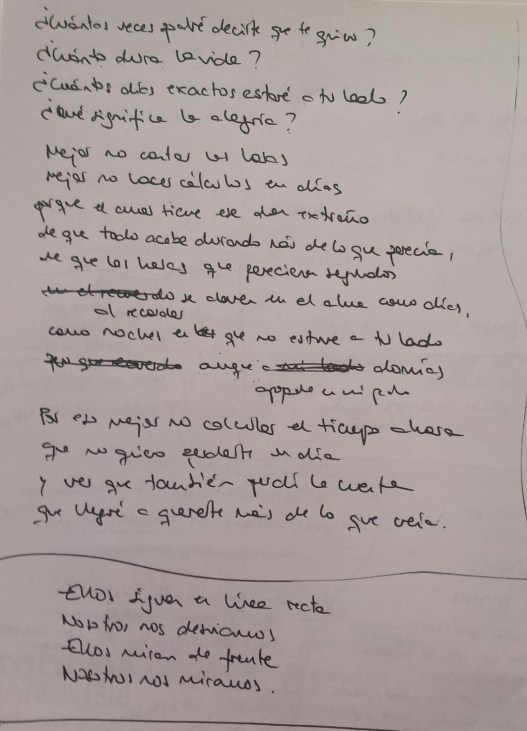 ¿Cuántas veces podré decirte que te quiero?
¿Cuánto dura la vida?
¿Cuántos días exactos estaré a tu lado?
¿Qué significa la alegría?
Mejor no contar las horas
Mejor no hacer cálculos en días
porque el amor tiene ese don extraño
de que todo acabe durando más de lo que parecía,
de que las horas que parecieran segundos
se claven en el alma como días,
al recordar
como noches en que no estuve a tu lado
aunque a dormías
Por eso mejor no calcular el tiempo ahora
que no quiero perderte un día
y ver que también perdí la cuenta
que llegué a quererte más de lo que creía.
Ellos siguen en línea recta
Nosotros nos desviamos
Ellos miran de frente
Nosotros nos miramos.